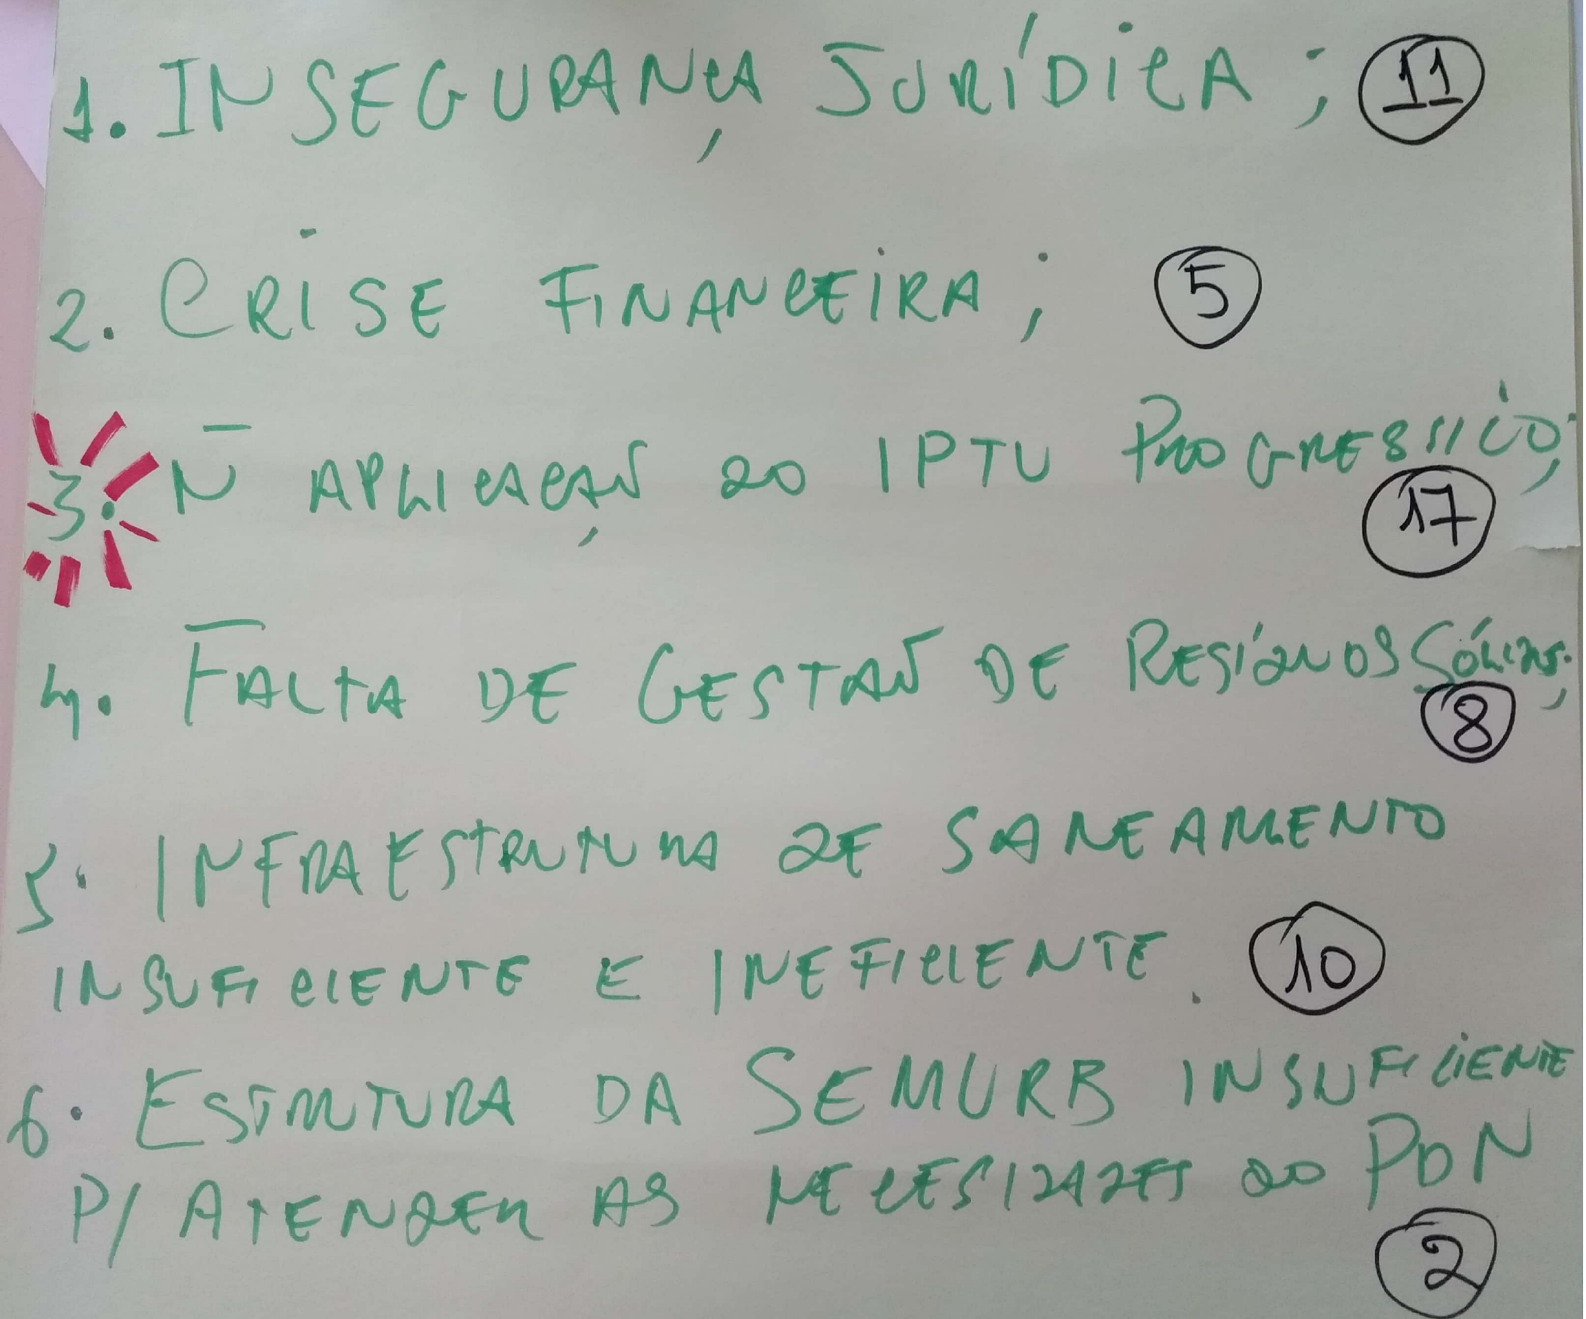 1. INSEGURANÇA JURÍDICA; 11
2. CRISE FINANCEIRA; 5
3. Ñ APLICAÇÃO DO IPTU PROGRESSIVO;
17
4. FALTA DE GESTÃO DE RESÍDUOS SÓLIDOS;
8
5. INFRAESTRUTURA DE SANEAMENTO
INSUFICIENTE E INEFICIENTE. 10
6. ESTRUTURA DA SEMURB INSUFICIENTE
P/ ATENDER AS NECESIDADES DO PDN
2